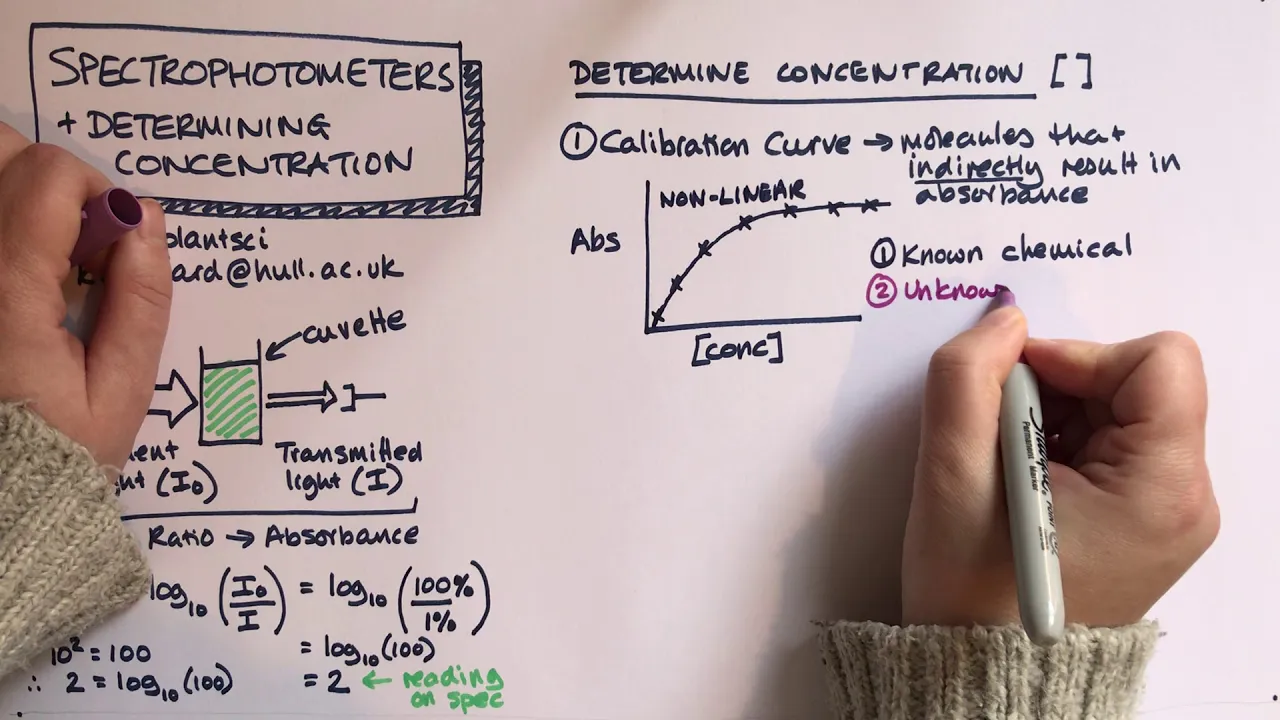 SPECTROPHOTOMETERS
+ DETERMINING
CONCENTRATION
plantsci
ard@hull.ac.uk
cuvette
Transmitted
light (I)
(I₀)
Ratio → Absorbance
log₁₀ (I₀/I) = log₁₀ (100%/1%)
10² = 100
= log₁₀ (100)
∴ 2 = log₁₀ (100)
= 2 ← reading
on spec
DETERMINE CONCENTRATION [ ]
① Calibration Curve → molecules that
indirectly result in
absorbance
NON-LINEAR
Abs
[conc]
① Known chemical
② Unknow
Sharpie
Permanent Marker